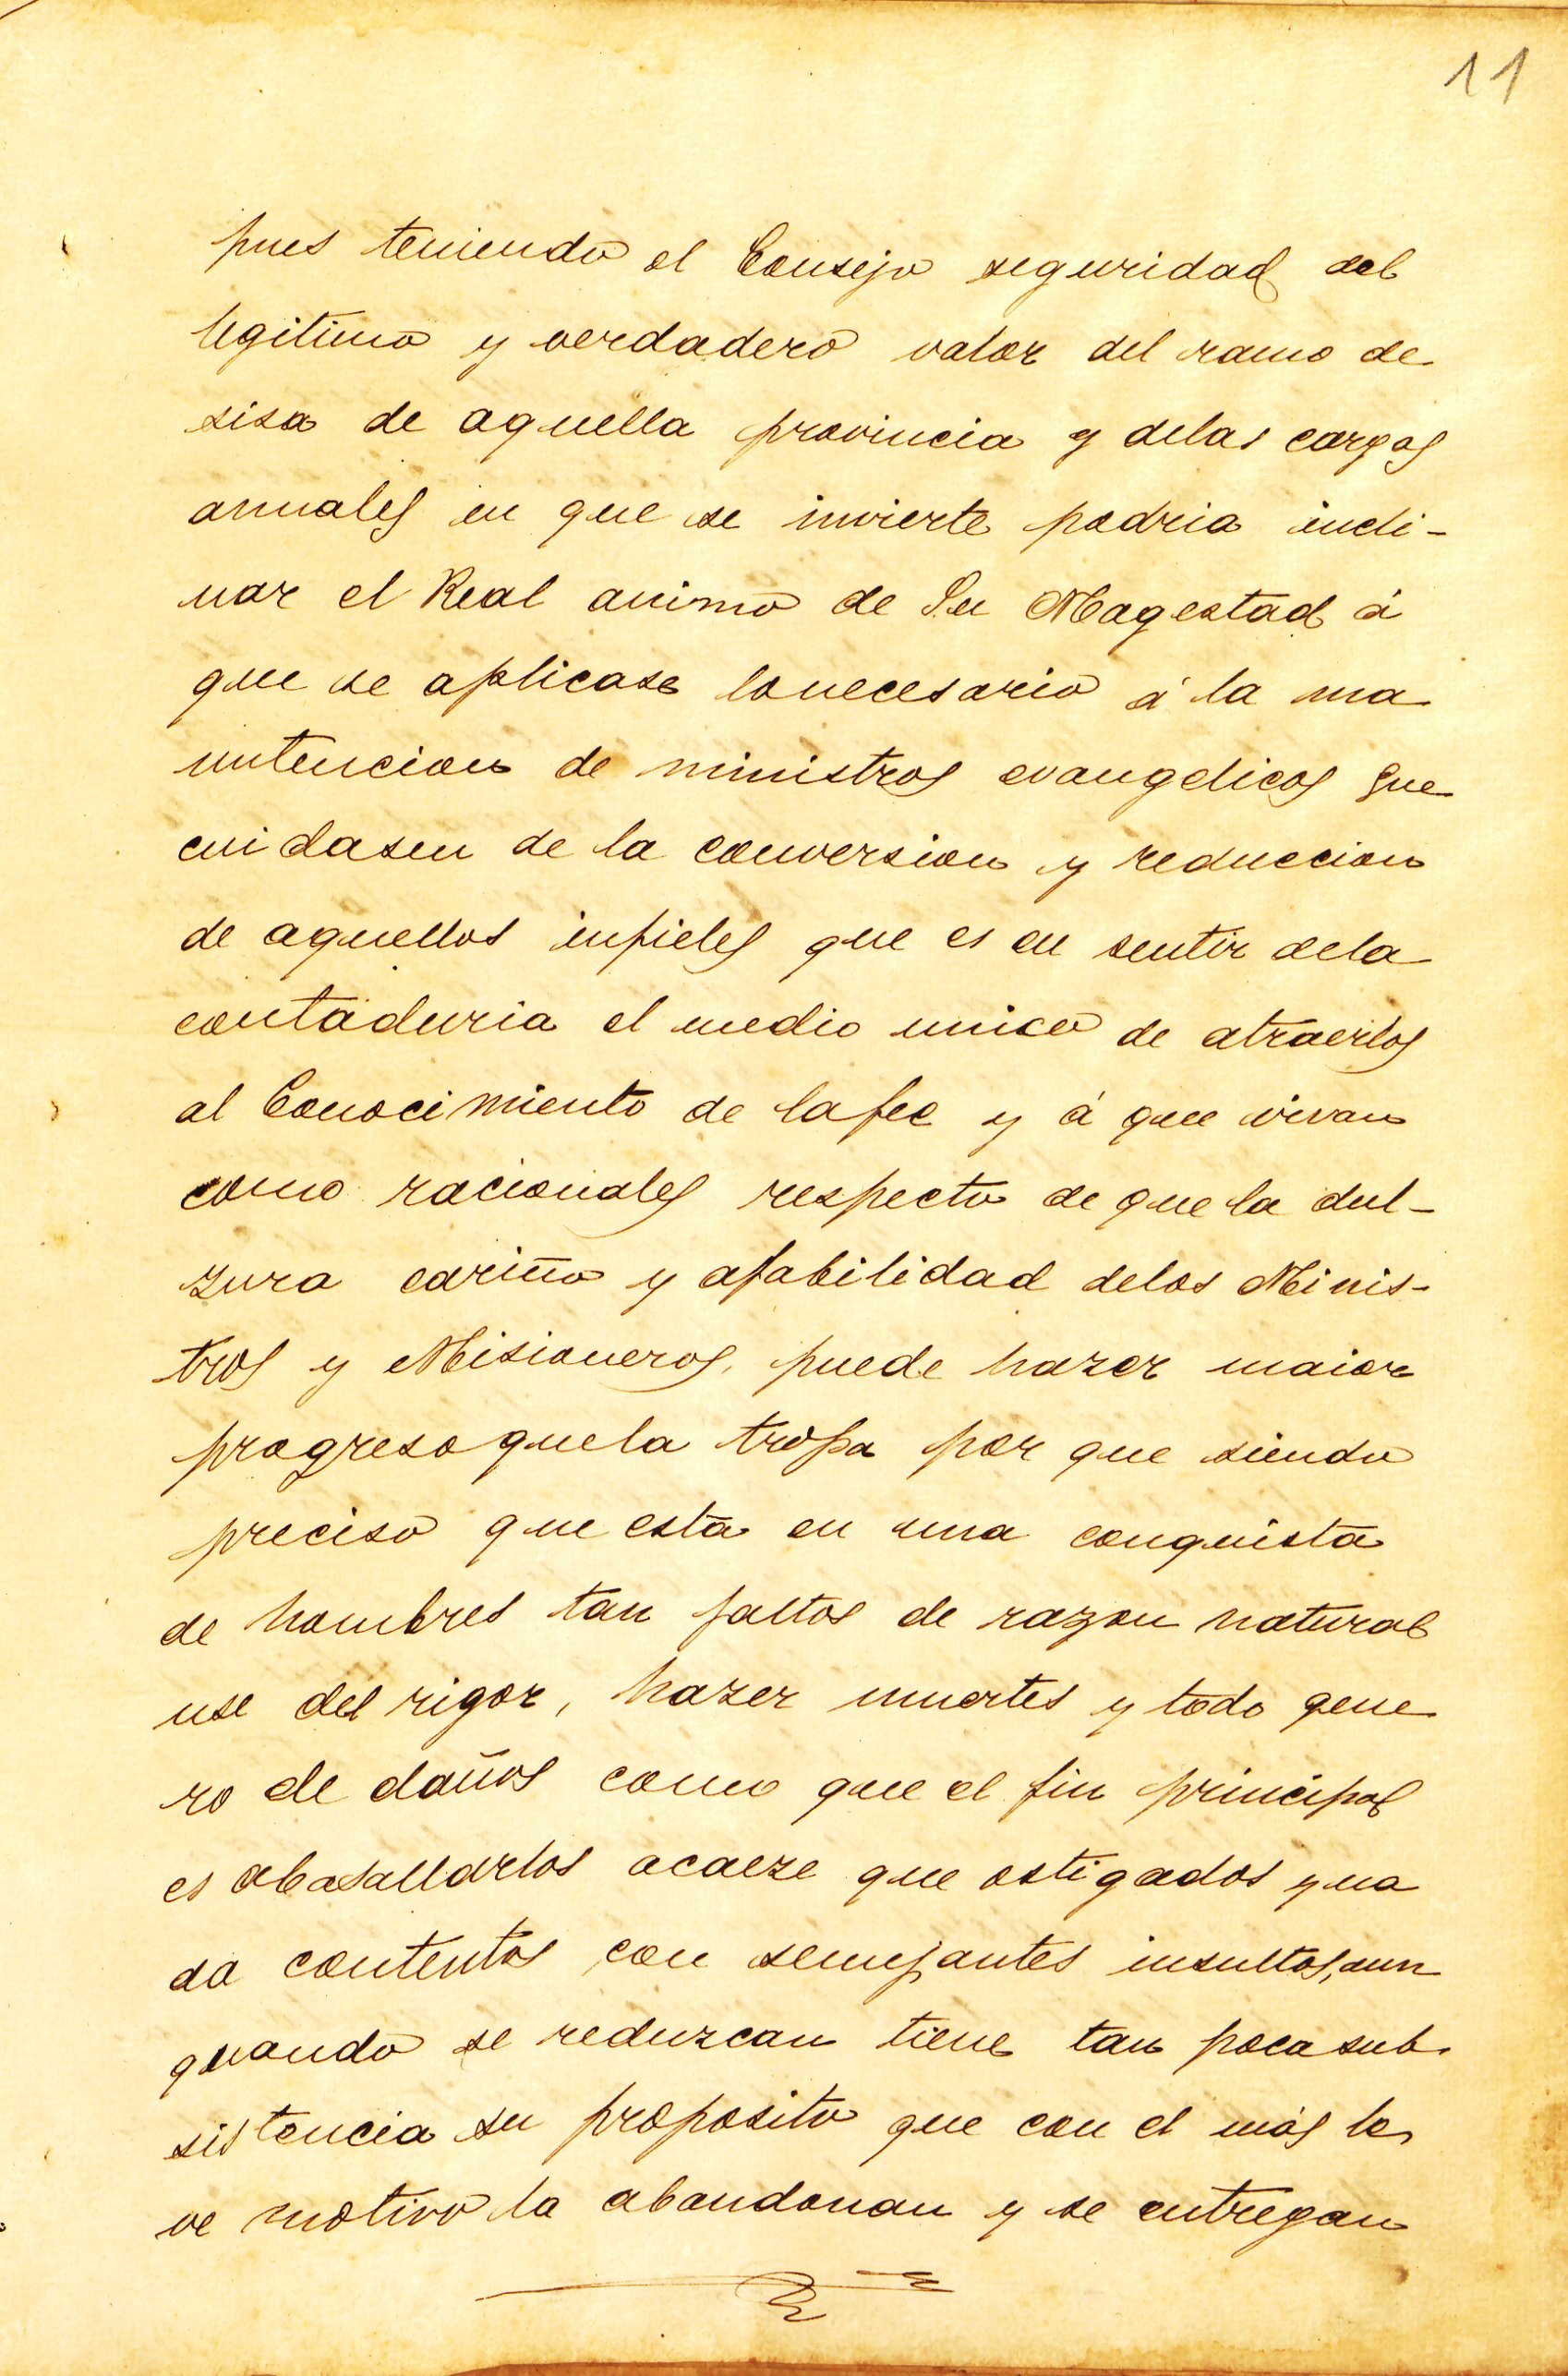 11
pues teniendo el Consejo seguridad del
legitimo y verdadero valor del ramo de
sisa de aquella provincia y delas cargas
annuales en que se invierte podria incli-
nar el Real animo de Su Magestad á
que se aplicase lonecesario á la ma
nutencion de ministros evangelicos que
cuidasen de la conversion y reduccion
de aquellos infieles que es en sentir dela
contaduria el medio unico de atraerlos
al Conocimiento de lafee y á que vivan
como racionales respecto de que la dul-
zura cariño y afabilidad delos Minis-
tros y Misioneros, puede hazer maior
progreso quela tropa por que siendo
preciso que esta en una conquista
de hombres tan faltos de razon natural
use del rigor, hazer muertes y todo gene
ro de daños como que el fin principal
es abasallarlos acaeze que ostigados y na
da contentos con semejantes insultos, aun
quando se reduzcan tiene tan poca sub-
sistencia su proposito que con el más le
ve motivo la abandonan y se entregan